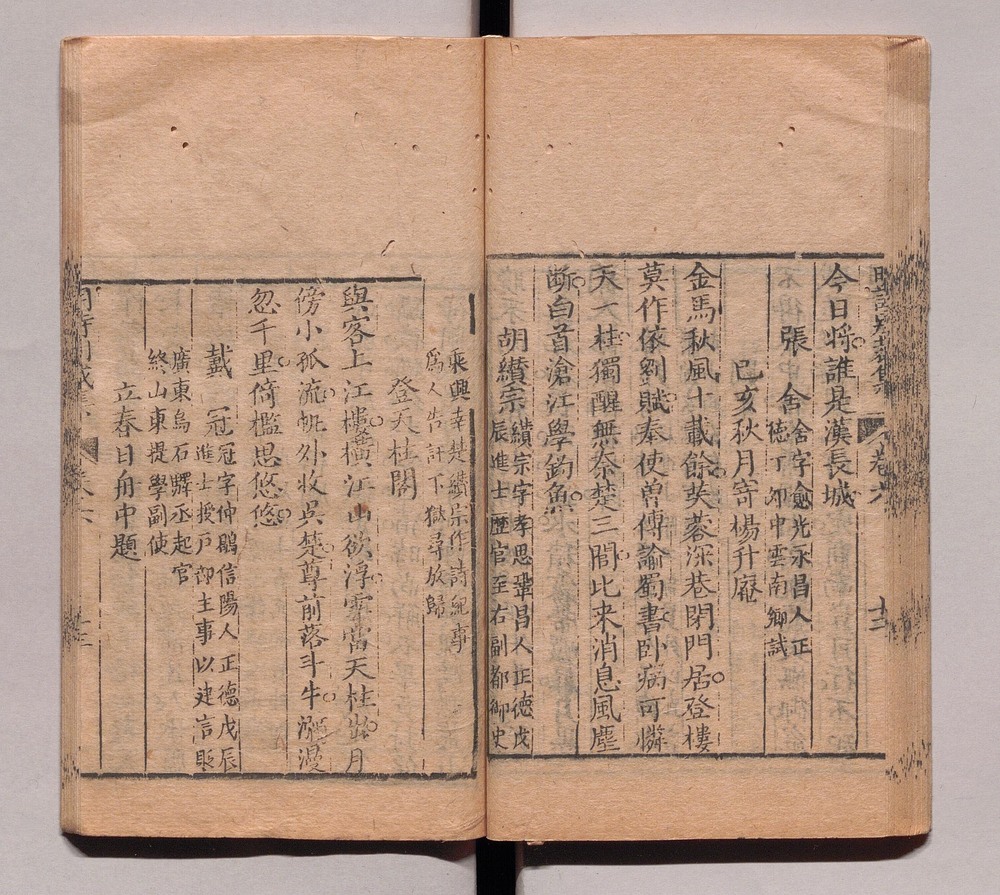 今日將誰是漢長城
張 含 含字愈光永昌人正
德丁卯中雲南鄉試
己亥秋月寄楊升庵
金馬秋風十載餘芙蓉深巷閉門居登樓
莫作依劉賦奉使曾傳諭蜀書卧病可憐
天下桂獨醒無奈楚三閭比来消息風塵
断白首滄江學釣魚
胡纘宗 纘宗字孝思鞏昌人正德戊
辰進士歷官至右副都御史
乘輿幸楚纘宗作詩紀事
為人告訐下獄尋放歸
登天柱閣
與客上江樓樓橫江山欲浮雲當天柱出月
傍小孤流帆外收吳楚尊前落斗牛瀰漫
忽千里倚檻思悠悠
戴 冠 冠字仲鶡信陽人正德戊辰
進士授戶部主事以建言貶
廣東烏石驛丞起官
終山東提學副使
立春日舟中題